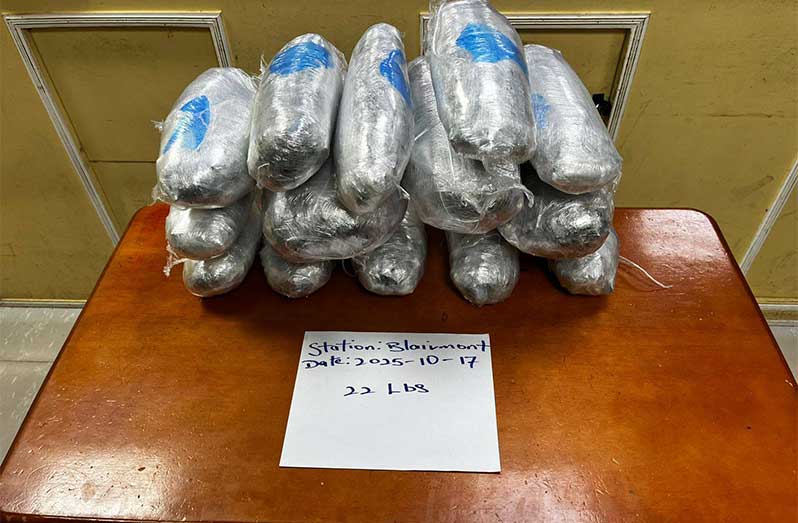 Station: Blairmont
Date: 2025-10-17
22 Lbs